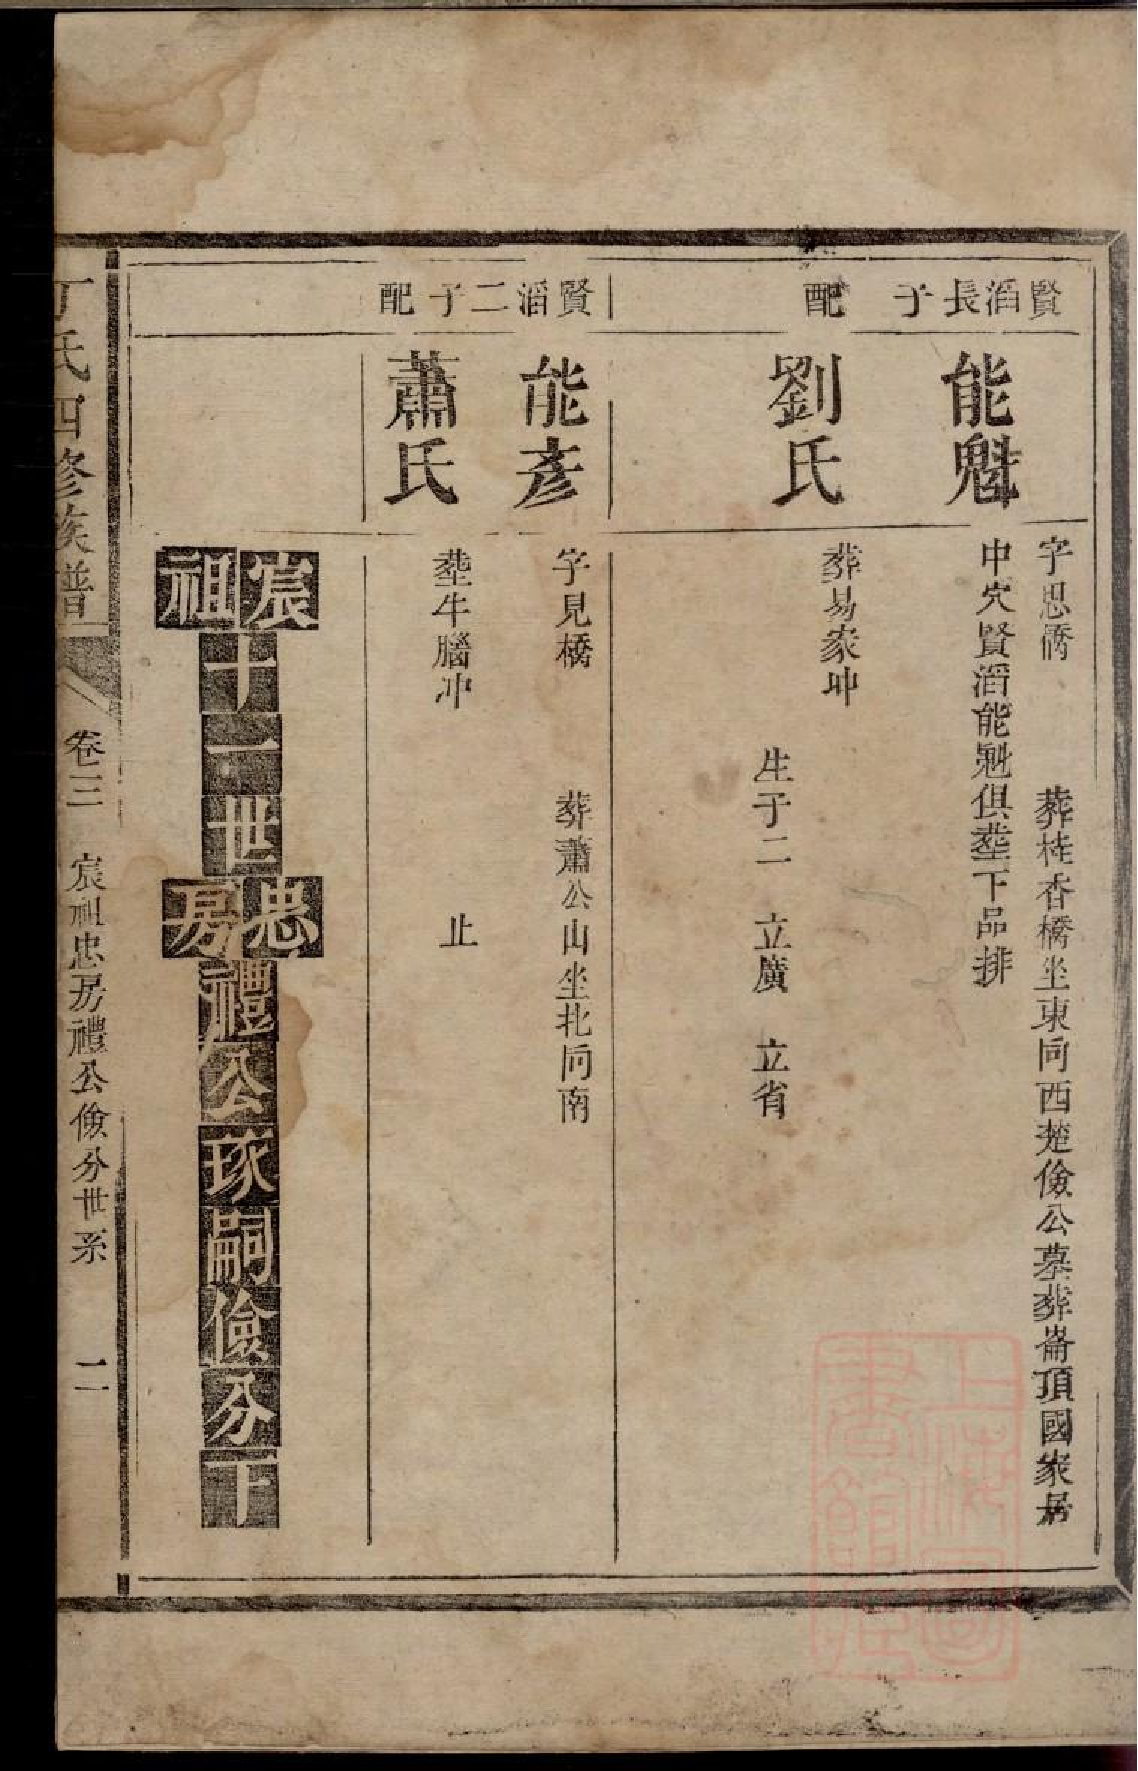 賢滔長子
能魁
字思橋　葬桂香橋坐東向西楚儉公墓葬崙頂國家居
中穴賢滔能魁俱塟下品排
配
劉氏
葬易家冲
生子二　立廣　立省
賢滔二子
能彥
字見橋　葬蕭公山坐北向南
配
蕭氏
塟牛腦冲　止
宸祖十一世忠房禮公琢嗣儉分下
丁氏四修族譜
卷三　宸祖忠房禮公儉分世系　二
上海圖書館藏